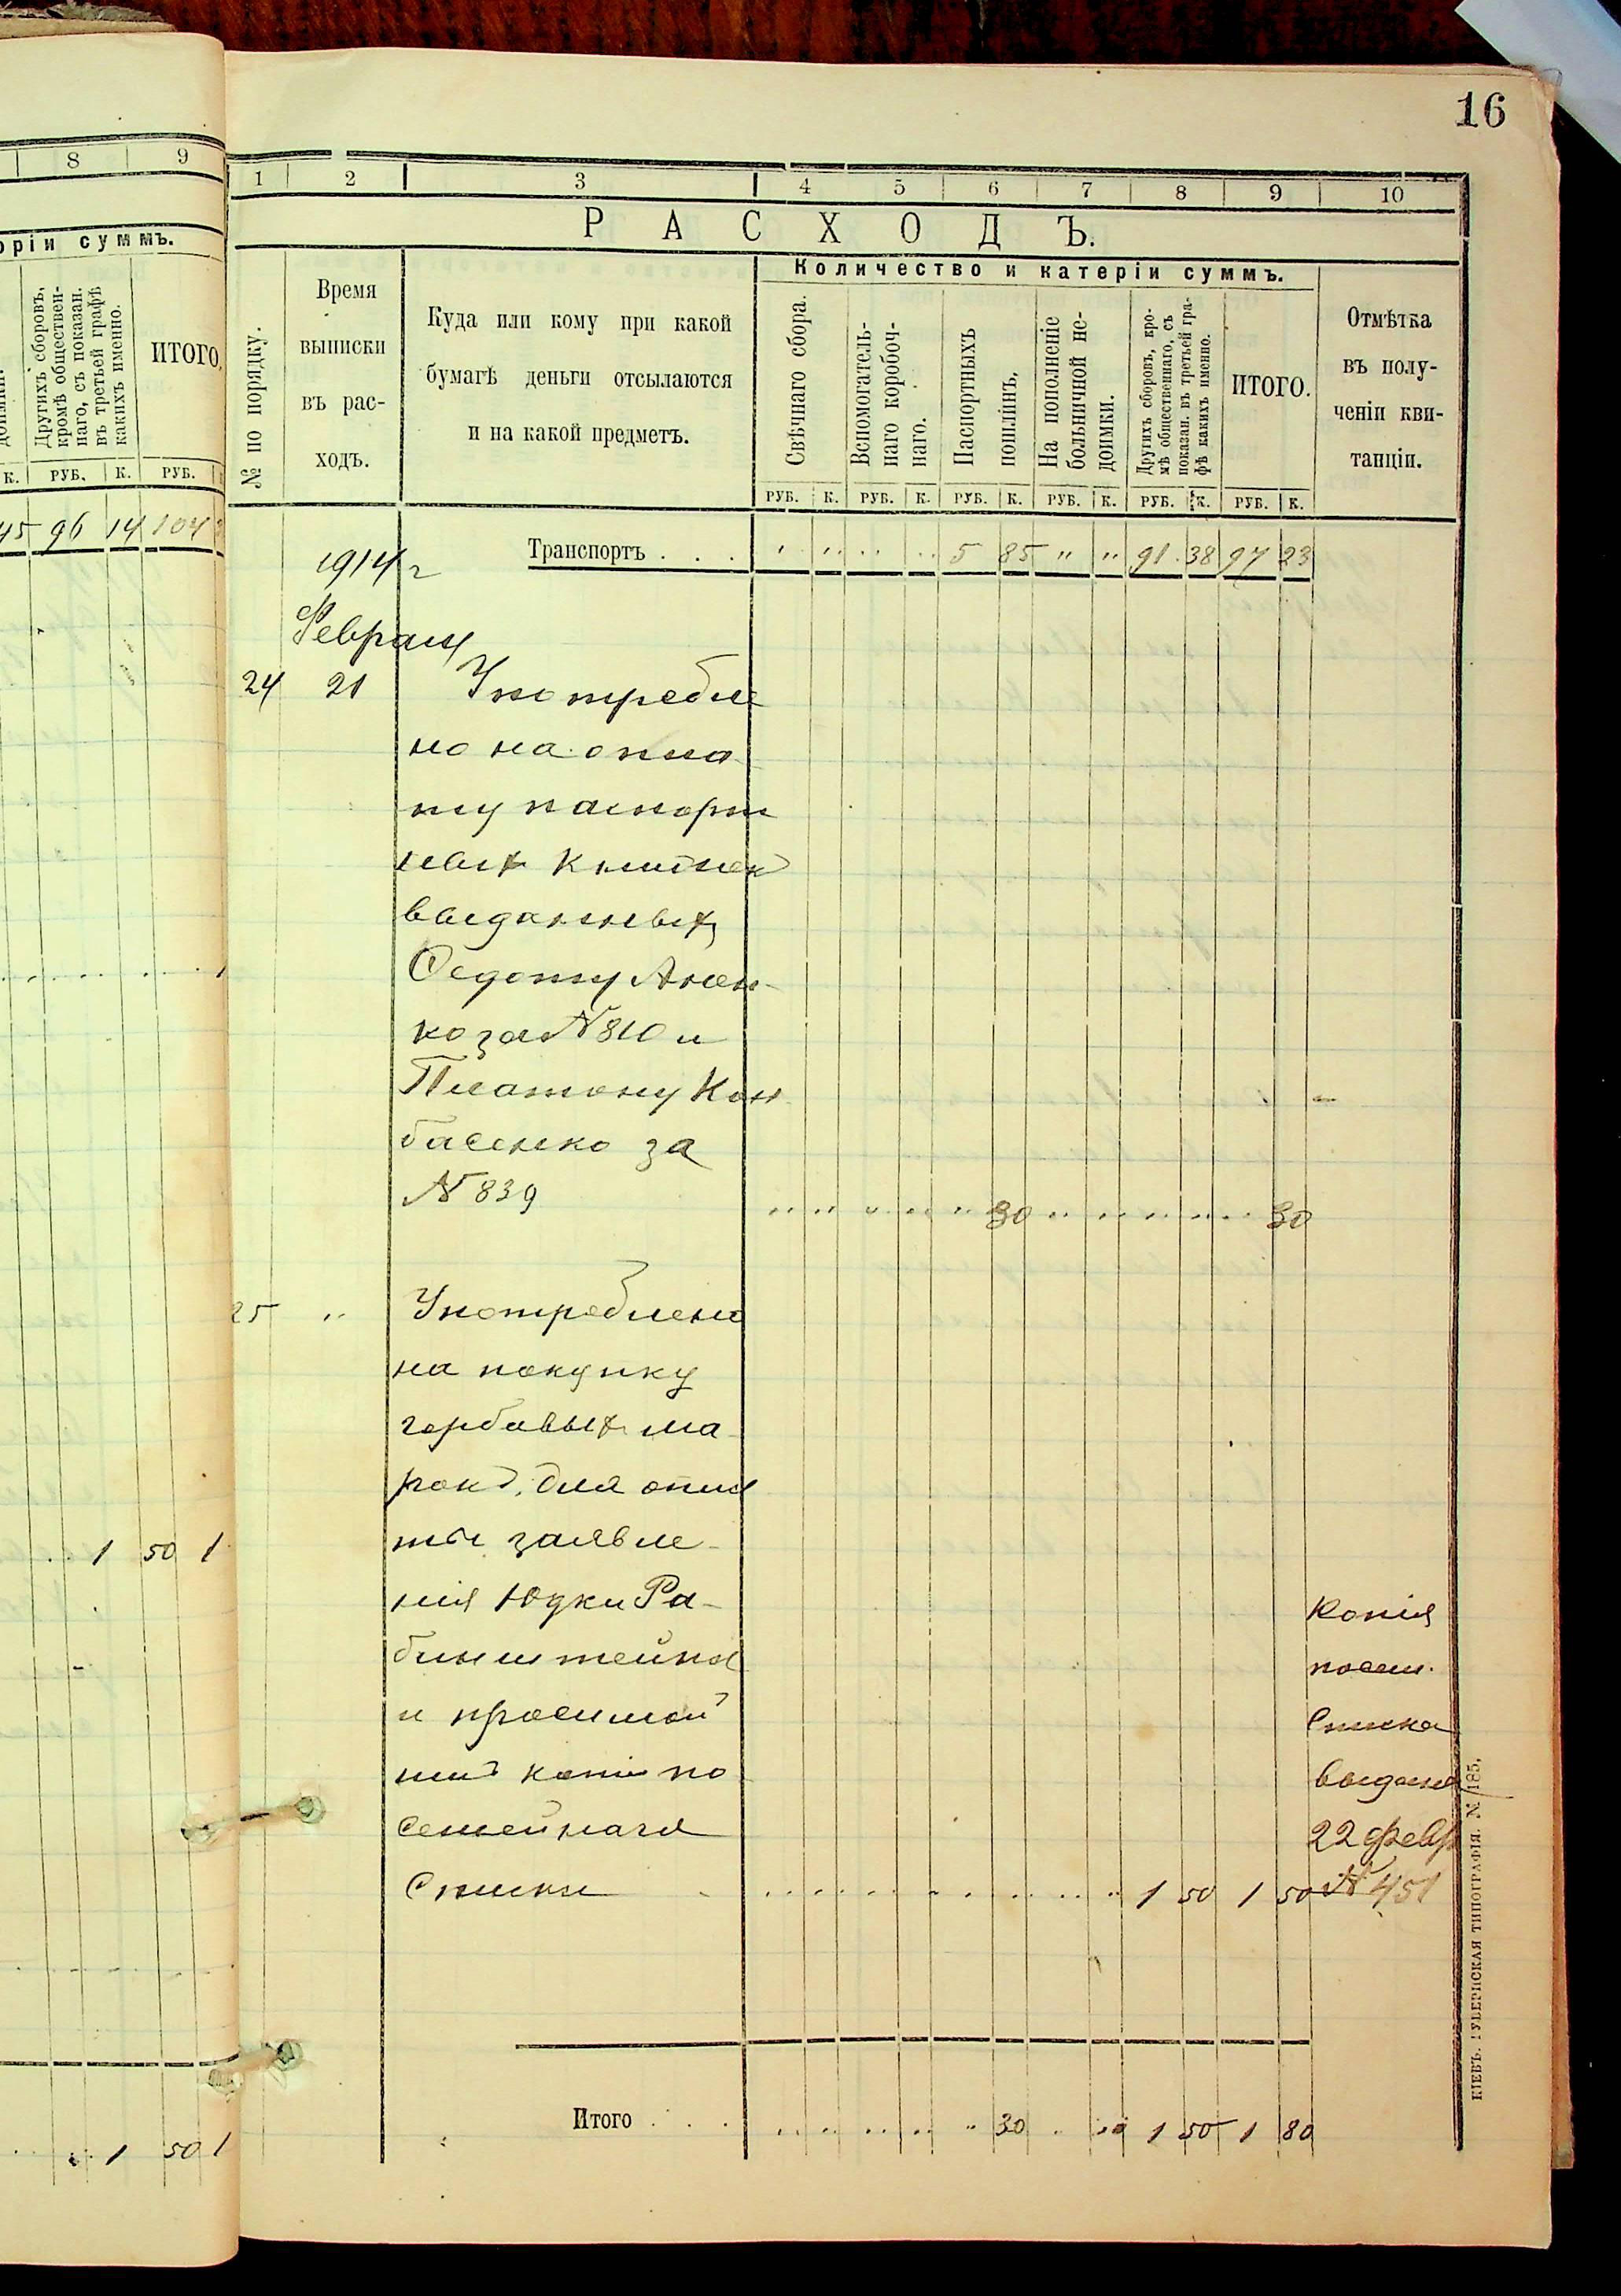 16
8 9
оріи суммъ.
Другихъ сборовъ,
кромѣ обществен-
наго, съ показан.
въ третьей графѣ
какихъ именно.
ИТОГО.
К. РУБ. К. РУБ.
45 96 14 104
1 50 1
1 50 1
1 2 3 4 5 6 7 8 9 10
РАСХОДЪ.
№ по порядку.
Время
выписки
въ рас-
ходъ.
Куда или кому при какой
бумагѣ деньги отсылаются
и на какой предметъ.
Количество и катеріи суммъ.
Свѣчнаго сбора.
Вспомогатель-
наго коробоч-
наго.
Паспортныхъ
пошлинъ.
На пополненіе
больничной не-
доимки.
Другихъ сборовъ, кро-
мѣ общественнаго, съ
показан. въ третьей гра-
фѣ какихъ именно.
ИТОГО.
Отмѣтка
въ полу-
ченіи кви-
танціи.
РУБ. К. РУБ. К. РУБ. К. РУБ. К. РУБ. К. РУБ. К.
Транспортъ . . . " " " " 5 85 " " 91 38 97 23
1914 г
Февраля
24 21 Употребле
но на опла
ту паспорт
ныхъ книжекъ
выданныхъ
Федоту Анен-
ко за № 810 и
Платону Кол
басенко за
№ 839 " " " " " 30 " " " " " 30
25 " Употреблено
на покупку
гербовыхъ ма
рокъ для опла
ты заявле-
нія Юдки Ра-
бинштейна
и просимой
имъ копіи по
семейнаго
списка 1 50 1 50
Копія
посем.
списка
выдана
22 февр
№ 451
Итого . . . 30 1 50 1 80
КІЕВЪ. ГУБЕРНСКАЯ ТИПОГРАФІЯ. № 185.